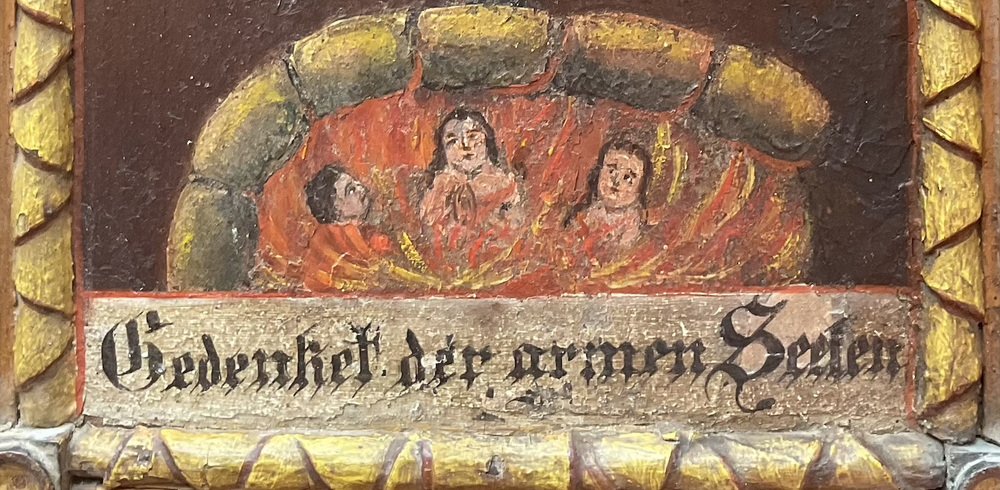 Gedenket der armen Seelen